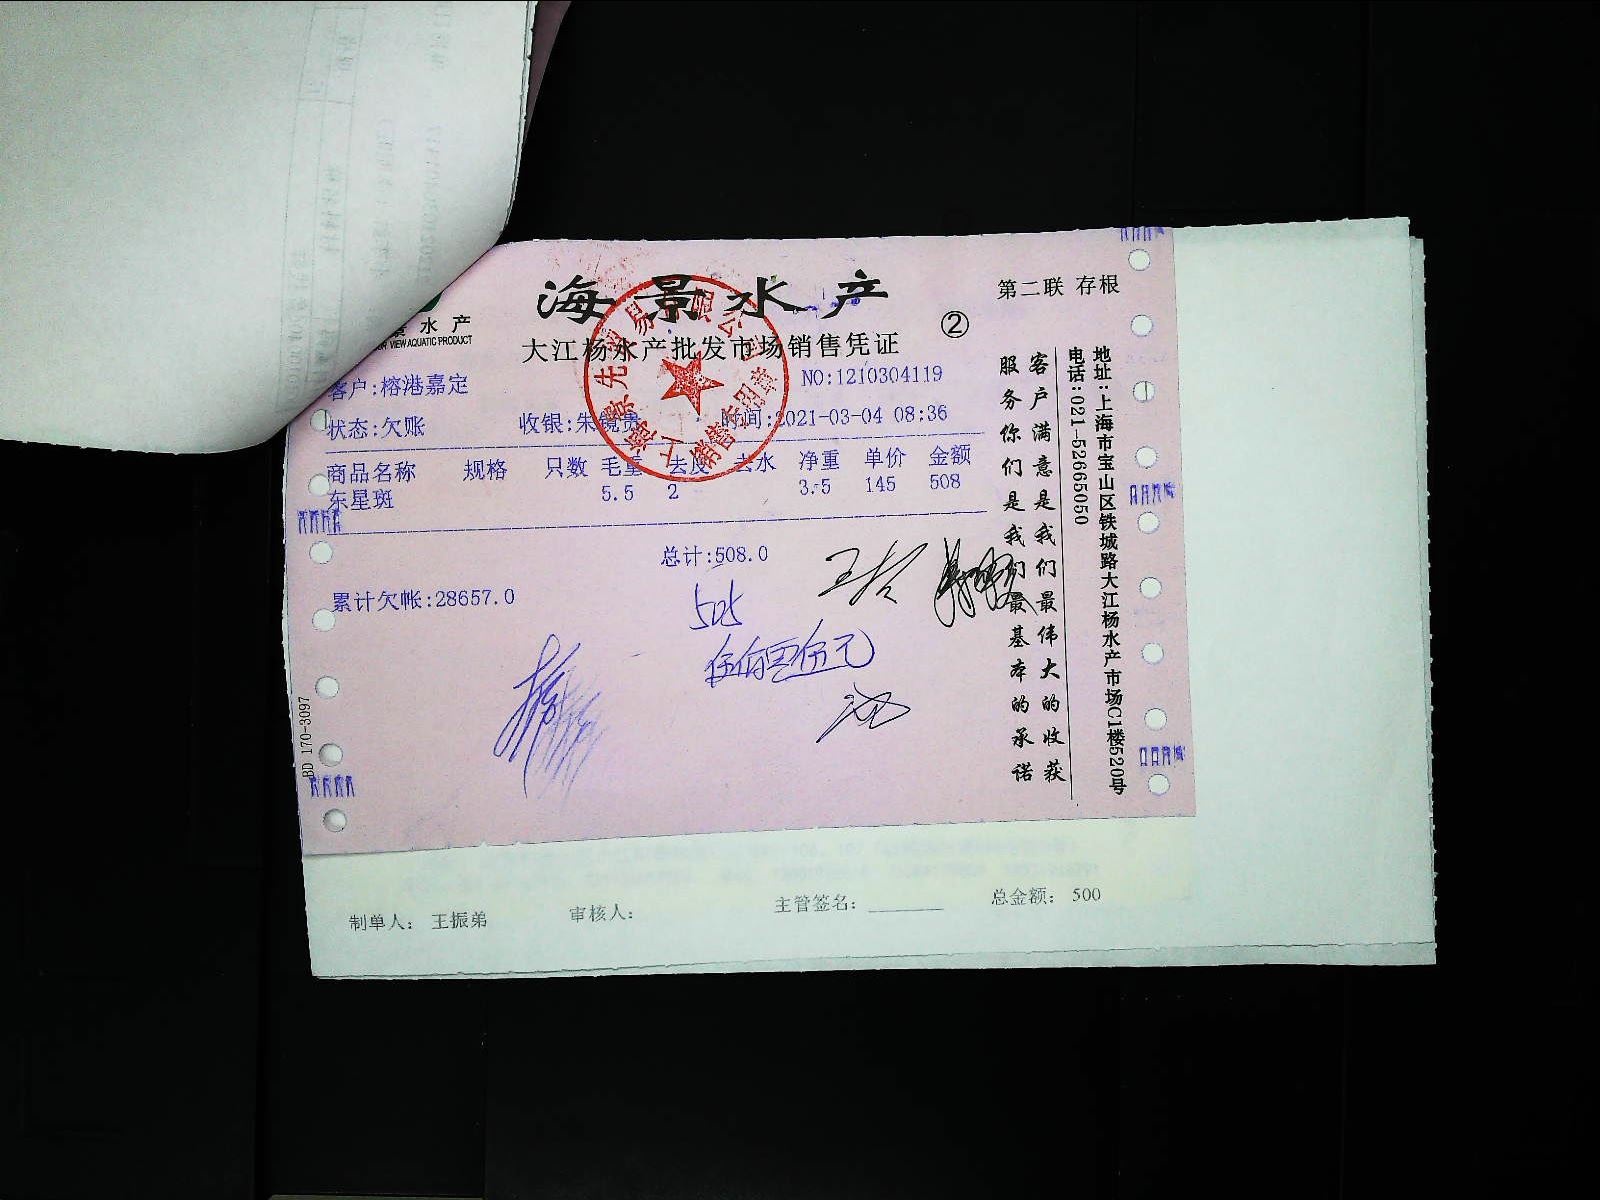 海景水产
第二联 存根
景水产
VIEW AQUATIC PRODUCT
②
大江杨水产批发市场销售凭证
客户:榕港嘉定
NO:1210304119
状态:欠账
收银:朱镜贵
时间:2021-03-04 08:36
商品名称 规格 只数 毛重 去皮 去水 净重 单价 金额
东星斑 5.5 2 3.5 145 508
总计:508.0
累计欠帐:28657.0
505
伍佰零伍元
客户满意是我们最伟大的收获
服务你们是我们最基本的承诺
地址:上海市宝山区铁城路大江杨水产市场C1楼520号
电话:021-52665050
销售专用章
BD 170-3097
制单人: 王振弟
审核人:
主管签名:
总金额: 500